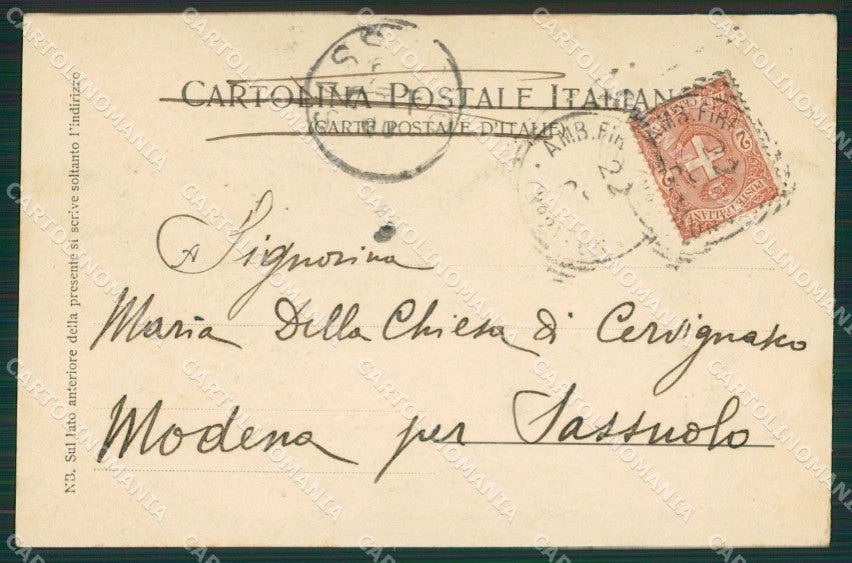 CARTOLINA POSTALE ITALIANA
(CARTE POSTALE D'ITALIE)
AMB. FIR
22
AMB. FIR
22
2
POSTE ITALIANE
2
A Signorina
Maria Della Chiesa di Cervignasco
Modena per Sassuolo
NB. Sul lato anteriore della presente si scrive soltanto l'indirizzo
CARTOLINOMANIA